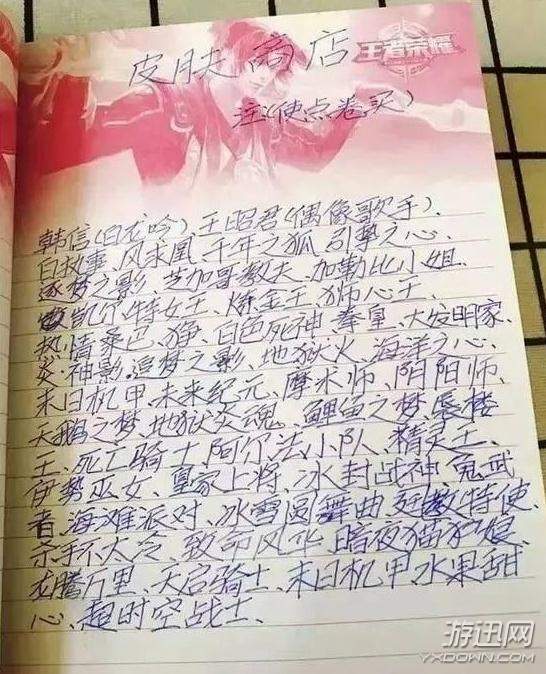 皮肤商店
王者荣耀
注(使点卷买)
韩信(白龙吟)、王昭君(偶像歌手)、
白故事、凤求凰、千年之狐、引擎之心、
逐梦之影、芝加哥教父、加勒比小姐、
凯个特女王、炼金王、狮心王、
热情桑巴、狰、白色死神、拳皇、大发明家、
炎·神影、追梦之影、地狱火、海洋之心、
末日机甲、未来纪元、摩术师、阴阳师、
天鹅之梦、地狱炎魂、鲤鱼之梦、蜃楼
王、死亡骑士、阿尔法小队、精灵王、
伊势巫女、皇家上将、冰封战神、鬼武
者、海滩派对、冰雪圆舞曲、廷教特使、
杀手不太冷、致命风华、暗夜猫娘、
龙腾万里、天启骑士、末日机甲、水果甜
心、超时空战士、
游迅网
YXDOWN.COM